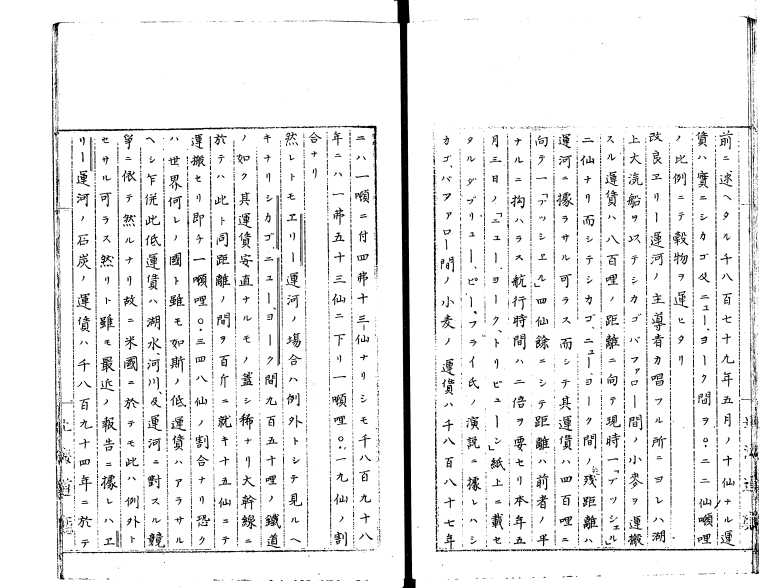 前ニ述ヘタル千八百七十九年五月ノ十仙ナル運
賃ハ實ニシカゴ及ニューヨーク間ヲ〇・二二仙噸哩
ノ比例ニテ穀物ヲ運ヒタリ
改良エリー運河ノ主導者カ唱フル所ニヨレハ湖
上大汽船ヲ以テシカゴバファロー間ノ小麥ヲ運搬
スル運賃ハ八百哩ノ距離ニ向テ現時一「ブッシェル」
二仙ナリ而シテシカゴ、ニューヨーク間ノ残距離ハ
運河ニ據ラサル可ラス而シテ其運賃ハ四百哩ニ
向テ一「ブッシェル」四仙餘ニシテ距離ハ前者ノ半
ナルニ拘ハラス航行時間ハ二倍ヲ要セリ本年五
月三日ノ「ニューヨーク、トリビューン」紙上ニ載セ
タルダブリュー、ピー、フライ氏ノ演説ニ據レハシ
カゴ、バファロー間ノ小麦ノ運賃ハ千八百八十七年
ニハ一噸ニ付四弗十三仙ナリシモ千八百九十八
年ニハ一弗五十三仙ニ下リ一噸哩〇・一九仙ノ割
合ナリ
然レトモエリー運河ノ場合ハ例外トシテ見ルヘ
キナリシカゴ、ニューヨーク間九百五十哩ノ鐵道
ノ如ク其運賃安直ナルモノ蓋シ稀ナリ大幹線ニ
於テハ此ト同距離ノ間ヲ百斤ニ就キ十五仙ニテ
運搬セリ即チ一噸哩〇・三四八仙ノ割合ナリ恐ク
ハ世界何レノ國ト雖モ如斯ノ低運賃ハアラサル
ヘシ乍併此低運賃ハ湖水、河川及運河ニ對スル競
爭ニ依テ然ルナリ故ニ米國ニ於テモ此ハ例外ト
セサル可ラス然リト雖モ最近ノ報告ニ據レハエ
リー運河ノ石炭ノ運賃ハ千八百九十四年ニ於テ